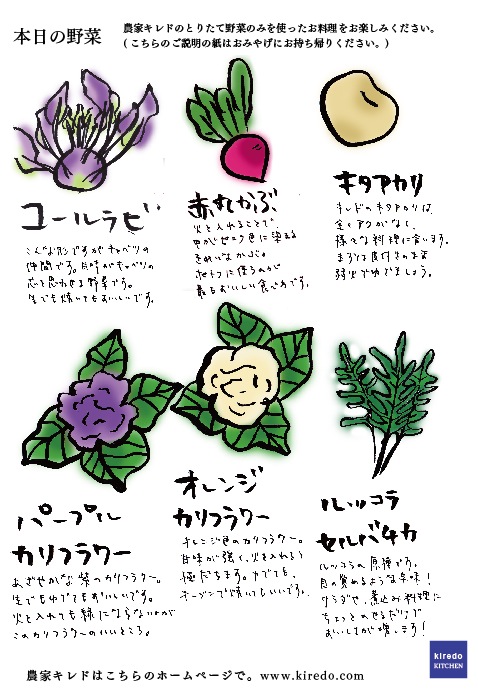 本日の野菜
農家キレドのとりたて野菜のみを使ったお料理をお楽しみください。
(こちらのご説明の紙はおみやげにお持ち帰りください。)
コールラビ
こんな形ですがキャベツの
仲間です。味がキャベツの
芯を思わせる野菜です。
生でも焼いてもおいしいです。
赤丸かぶ
火を入れることで、
中がピンク色に染まる
きれいなかぶ。
ポトフに使うのが
最もおいしい食べ方です。
キタアカリ
キレドのキタアカリは、
全くアクがなく、
様々な料理に合います。
まずは皮付きのまま
弱火でゆでましょう。
パープル
カリフラワー
あざやかな紫のカリフラワー。
生でもゆでてもおいしいです。
火を入れても緑にならないのが
このカリフラワーのいいところ。
オレンジ
カリフラワー
オレンジ色のカリフラワー。
甘味が強く、火を入れると
極だちます。ゆでても、
オーブンで焼いてもいいです。
ルッコラ
セルバチカ
ルッコラの原種です。
目の覚めるような辛味!
サラダや、煮込み料理に
ちょっとのせるだけで
おいしさが増します!
農家キレドはこちらのホームページで。www.kiredo.com
kiredo
KITCHEN